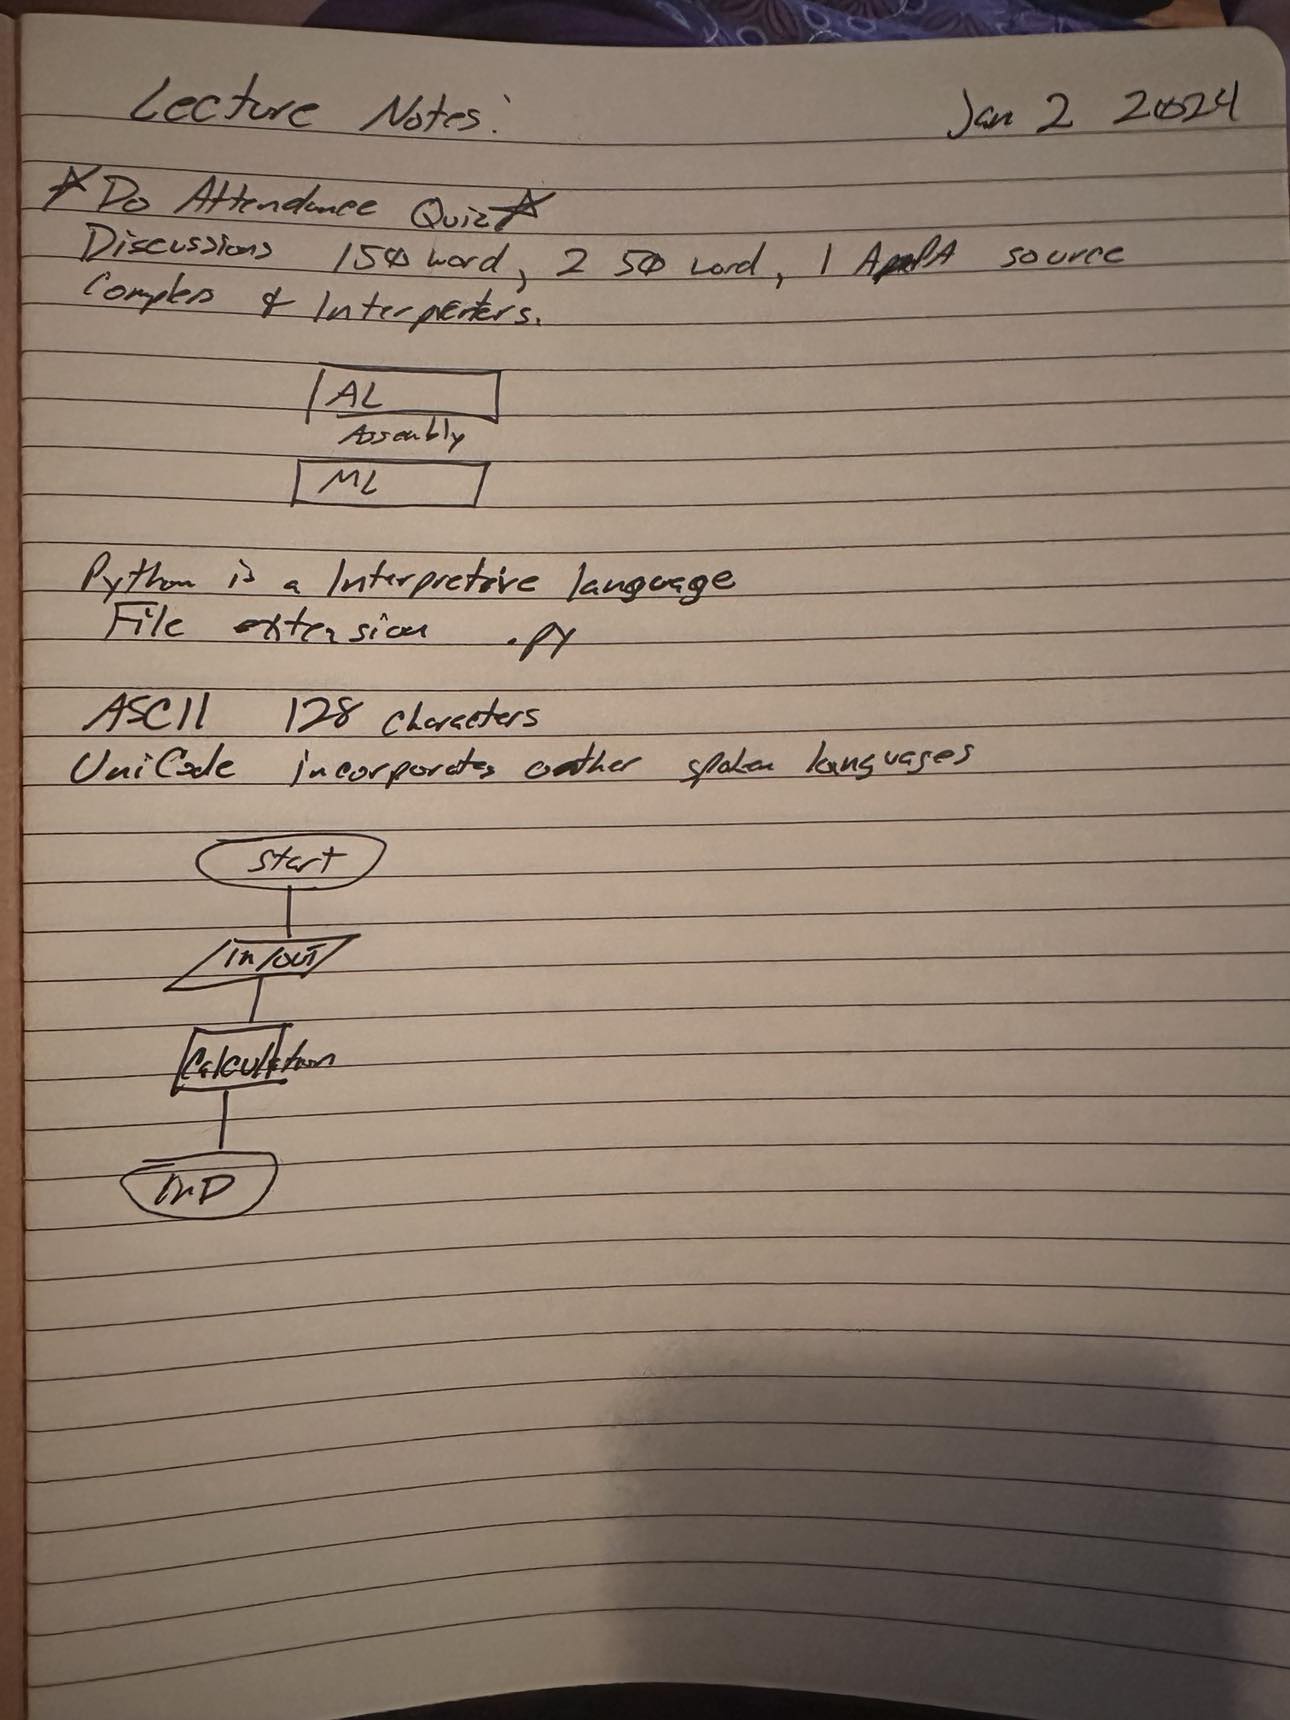 Lecture Notes:
Jan 2 2024
☆Do Attendance Quiz☆
Discussions 150 word, 2 50 word, 1 APA source
& Interperters.
AL
Assembly
ML
Python is a Interpretive language
File extension .py
ASCII 128 characters
UniCode incorporates other spoken languages
Start
in/out
Calculation
EnD